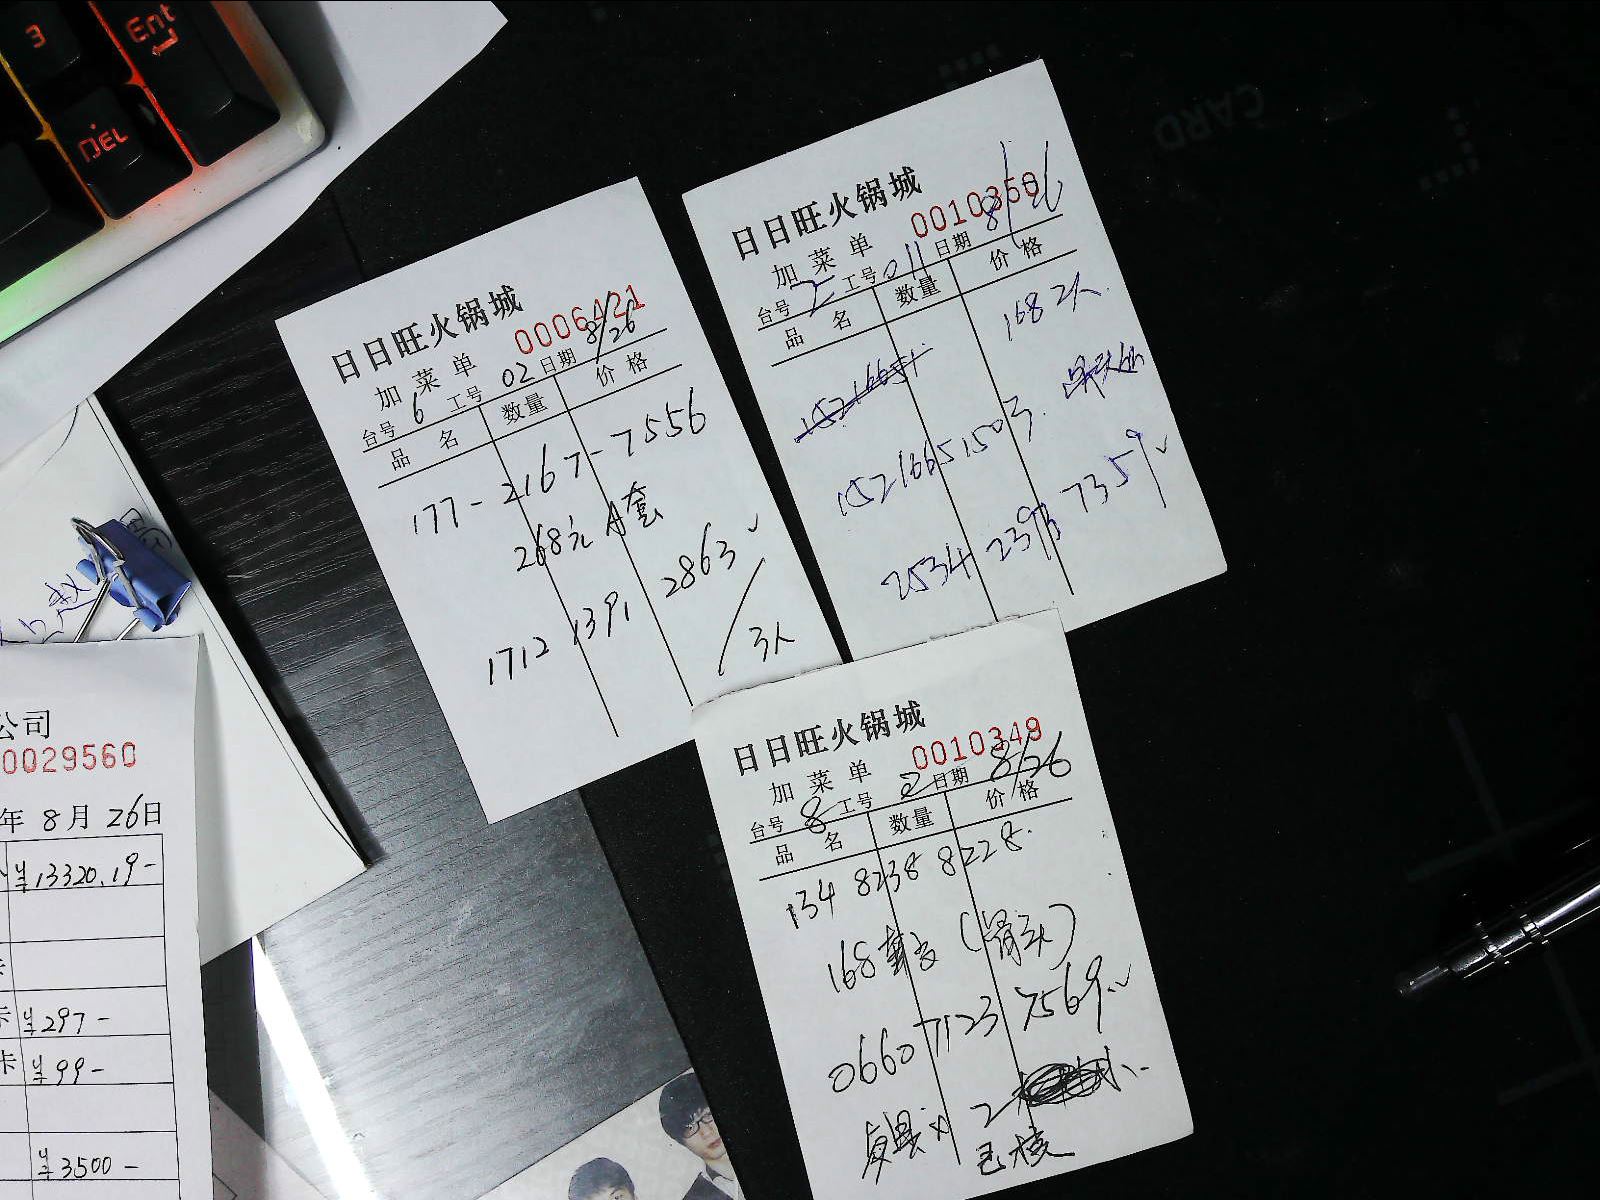 3
Ent
DEL
日日旺火锅城
0006421
加菜单
台号 6 工号 02 日期 8/26
品名 数量 价格
177-2167-7556
268元 A套
1712 1391 2863
3人
日日旺火锅城
0010350
加菜单
台号 2 工号 011 日期 8/26
品名 数量 价格
168 2人
2534 7359
日日旺火锅城
0010349
加菜单
台号 8 工号 2 日期 8/26
品名 数量 价格
134 8238 8228
168 (骨头)
0660 7123 7569
2
已核
公司
0029560
年 8月 26日
¥13320.19-
卡 ¥297-
卡 ¥99-
¥3500-
CARD